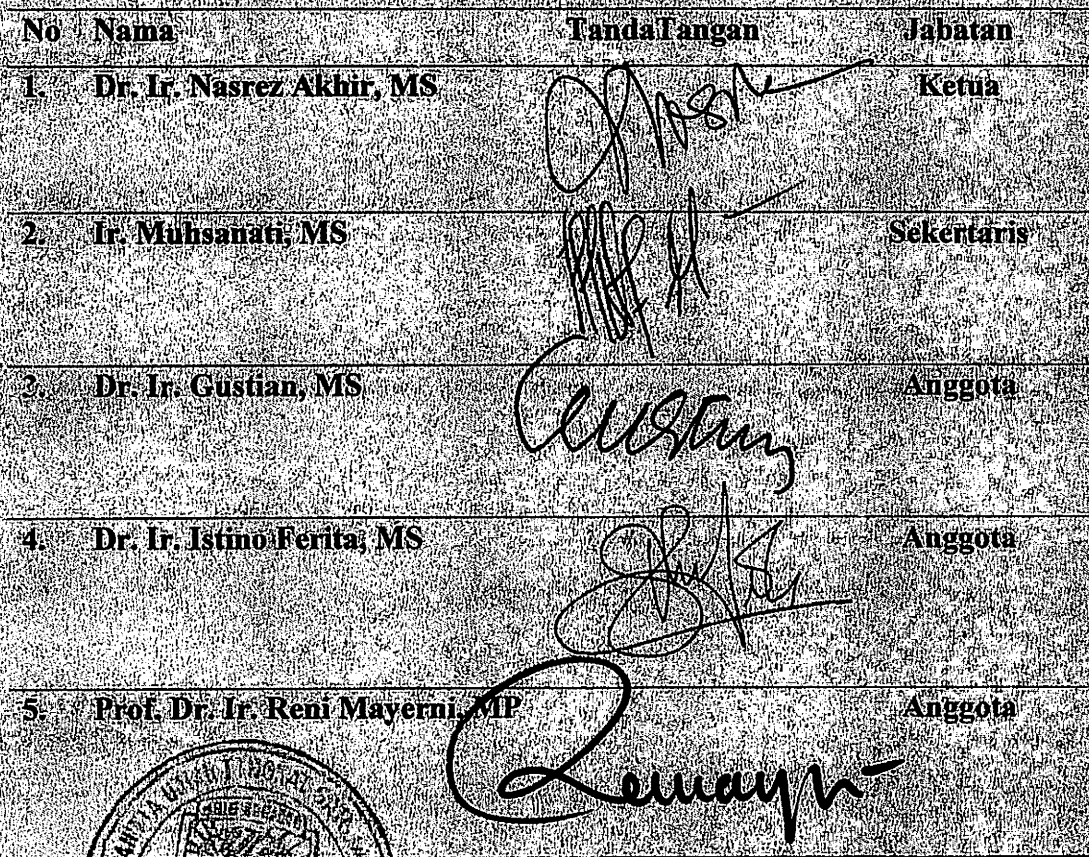 No Nama TandaTangan Jabatan
1. Dr. Ir. Nasrez Akhir, MS Ketua
2. Ir. Muhsanati, MS Sekertaris
3. Dr. Ir. Gustian, MS Anggota
4. Dr. Ir. Istino Ferita, MS Anggota
5. Prof. Dr. Ir. Reni Mayerni, MP Anggota